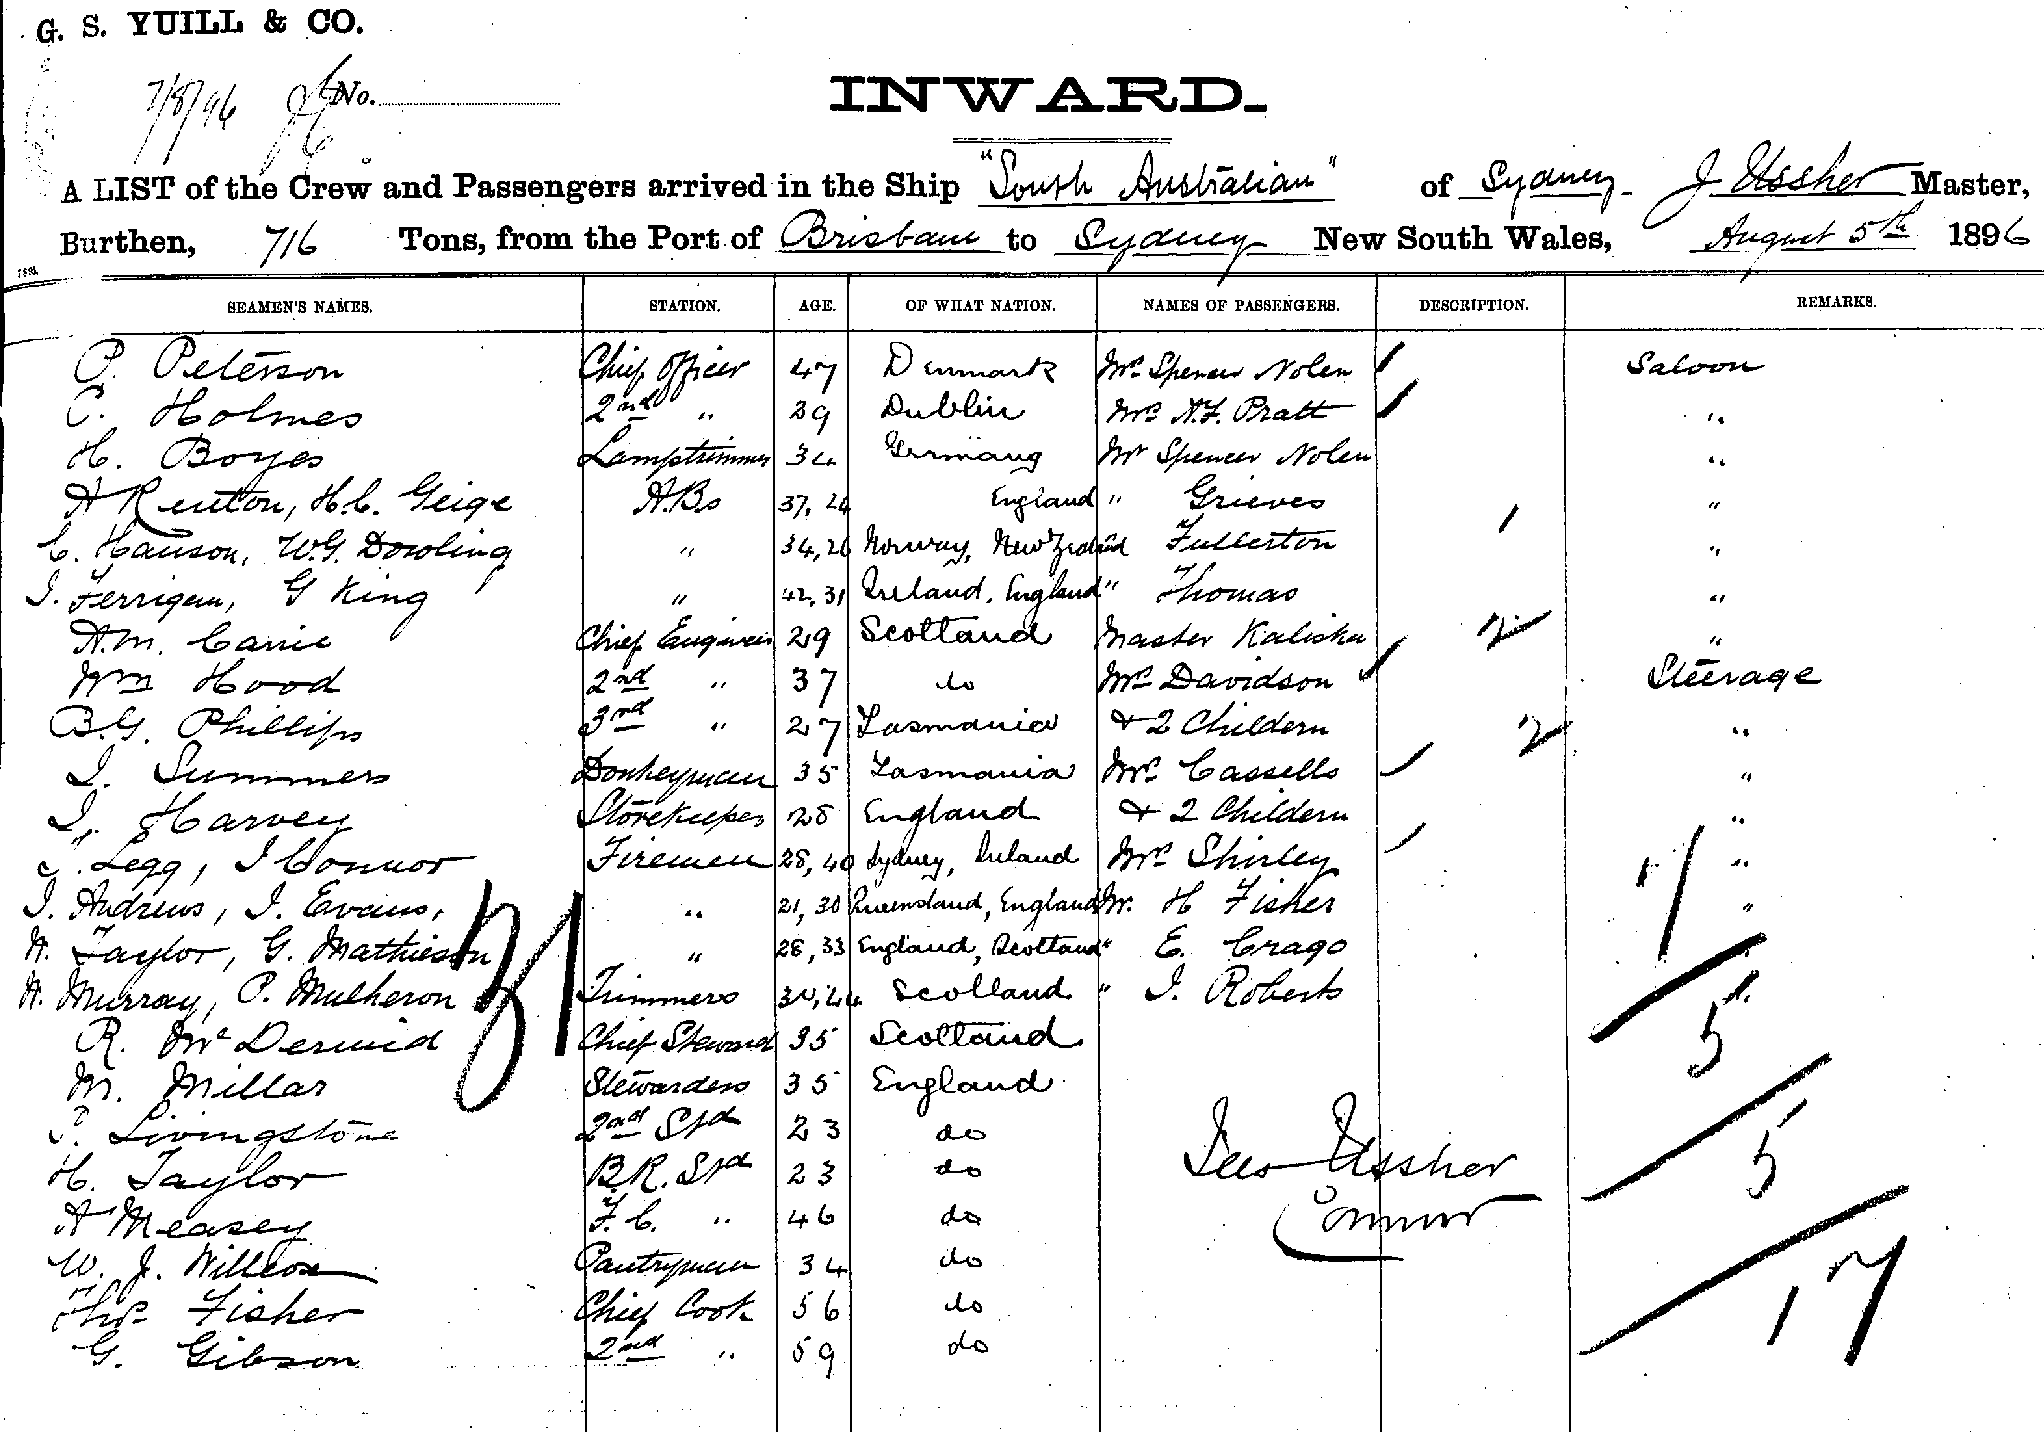 G. S. YUILL & CO.
7/8/96 No.
INWARD.
A LIST of the Crew and Passengers arrived in the Ship "South Australian" of Sydney J Ussher Master,
Burthen, 716 Tons, from the Port of Brisbane to Sydney New South Wales, August 5th 1896
SEAMEN'S NAMES. STATION. AGE. OF WHAT NATION. NAMES OF PASSENGERS. DESCRIPTION. REMARKS.
P. Peterson Chief Officer 47 Denmark Mrs Spencer Nolen / Saloon
C. Holmes 2nd " 39 Dublin Mrs A.F. Pratt / "
H. Boyes Lamptrimmer 34 Germany Mr Spencer Nolen "
A Renton, H.C. Geige A.Bs 37, 24 England " Grieves "
C. Hanson, W.G. Dowling " 34, 26 Norway, New Zealand " Fullerton 1 "
J. Ferrigan, G King " 42, 31 Ireland, England " Thomas "
A.M. Carrie Chief Engineer 29 Scotland Master Kaliska 2 "
Wm Hood 2nd " 37 do Mrs Davidson / Steerage
B.G. Phillips 3rd " 27 Tasmania + 2 Childern 2 "
J. Summers Donkeyman 35 Tasmania Mrs Cassells / "
J. Harvey Storekeeper 28 England + 2 Childern "
J. Legg, J Connor Firemen 28, 40 Sydney, Ireland Mrs Shirley / 17 "
J. Andrews, J. Evans, " 21, 30 Queensland, England Mr. H Fisher "
A. Taylor, G. Mathieson " 28, 33 England, Scotland " E. Crago
A. Murray, P. Mulheron 31 Trimmers 30, 44 Scotland " J. Roberts 5
R. McDermid Chief Steward 35 Scotland
M. Millar Stewardess 35 England
P. Livingstone 2nd Std 23 do 5
H. Taylor B.R. Std 23 do Jno Ussher
A Measey F.C. " 46 do Commr
W. J. Willcox Pantryman 34 do
Thos Fisher Chief Cook 56 do 17
G. Gibson 2nd " 59 do